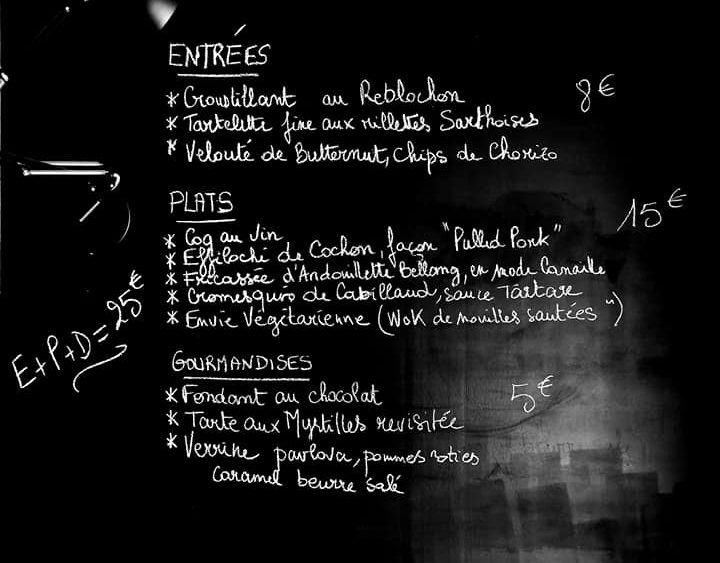 ENTRÉES
* Croustillant au Reblochon
8€
* Tartelette fine aux rillettes Sarthoises
* Velouté de Butternut, chips de Chorizo
PLATS
15€
* Coq au Vin
* Effiloché de Cochon, façon "Pulled Pork"
* Fricassée d'Andouillette Bellong, en mode Canaille
* Cromesquis de Cabillaud, sauce Tartare
* Envie Végétarienne (Wok de nouilles sautées")
E+P+D = 25€
GOURMANDISES
* Fondant au chocolat
5€
* Tarte aux Myrtilles revisitée
* Verrine pavlova, pommes roties
caramel beurre salé